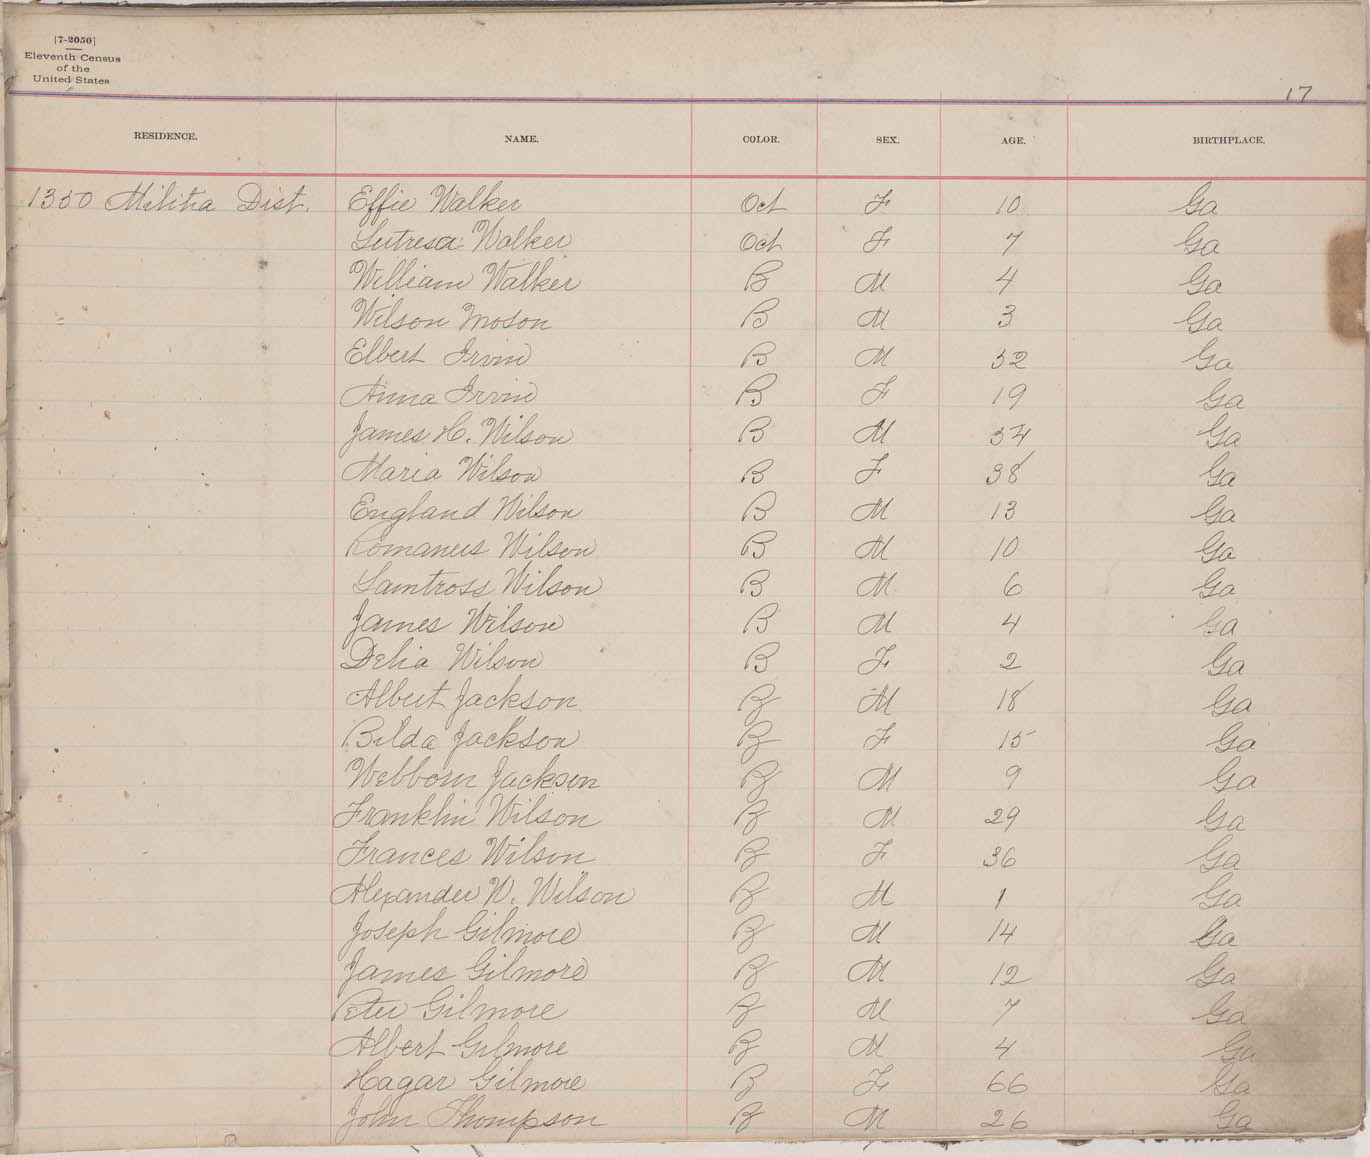 [7-2050]
Eleventh Census
of the
United States
17
RESIDENCE. NAME. COLOR. SEX. AGE. BIRTHPLACE.
1350 Militia Dist. Effie Walker Oct F 10 Ga
Lutresa Walker Oct F 7 Ga
William Walker B M 4 Ga
Wilson Moson B M 3 Ga
Elbert Irvin B M 52 Ga
Anna Irvin B F 19 Ga
James H. Wilson B M 54 Ga
Maria Wilson B F 38 Ga
England Wilson B M 13 Ga
Romaneus Wilson B M 10 Ga
Lamtross Wilson B M 6 Ga
James Wilson B M 4 Ga
Delia Wilson B F 2 Ga
Albert Jackson B M 18 Ga
Bilda Jackson B F 15 Ga
Webborn Jackson B M 9 Ga
Franklin Wilson B M 29 Ga
Frances Wilson B F 36 Ga
Alexander W. Wilson B M 1 Ga
Joseph Gilmore B M 14 Ga
James Gilmore B M 12 Ga
Peter Gilmore B M 7 Ga
Albert Gilmore B M 4 Ga
Hagar Gilmore B F 66 Ga
John Thompson B M 26 Ga